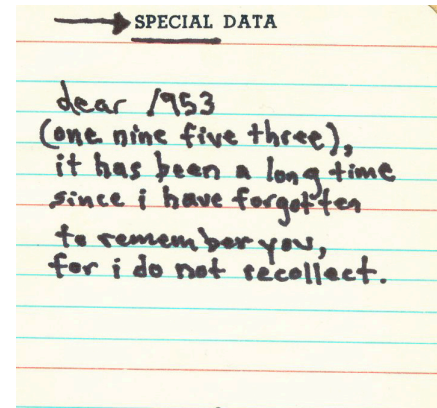 SPECIAL DATA
dear 1953
(one nine five three),
it has been a long time
since i have forgotten
to remember you,
for i do not recollect.